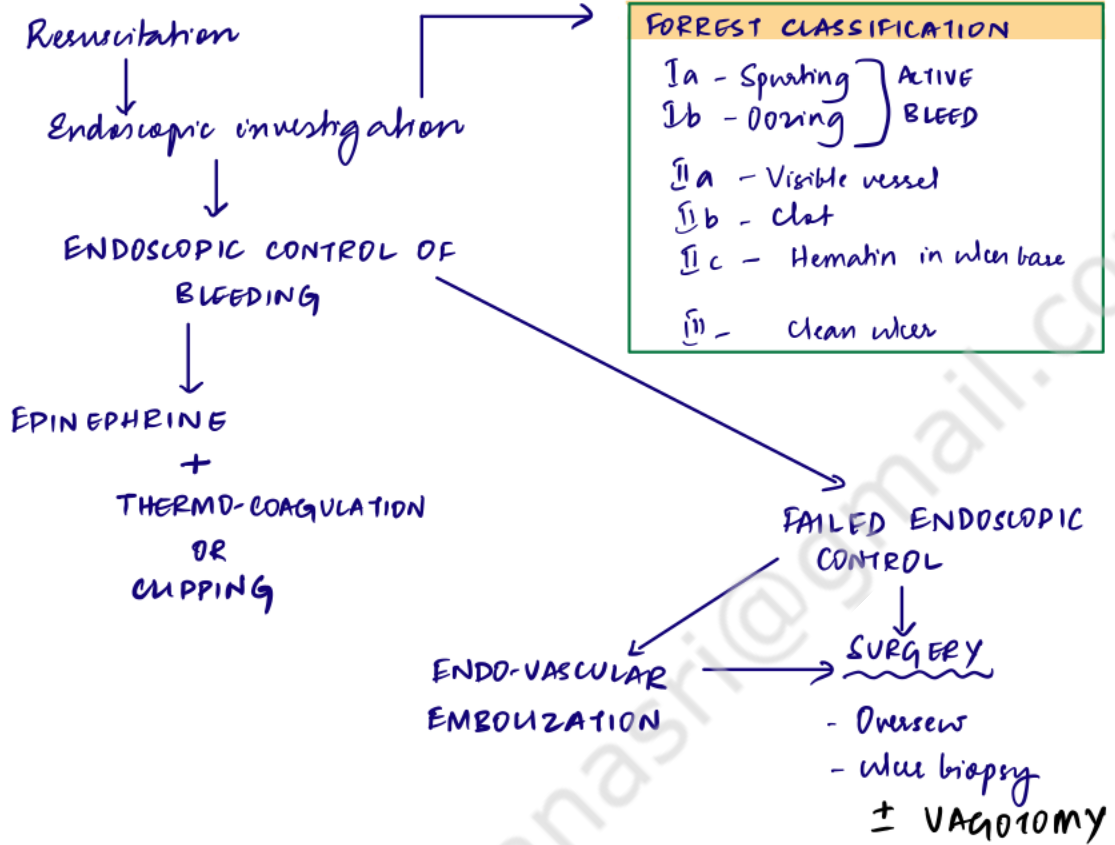 Resuscitation
Endoscopic investigation
ENDOSCOPIC CONTROL OF
BLEEDING
EPINEPHRINE
+
THERMO-COAGULATION
OR
CLIPPING
FORREST CLASSIFICATION
Ia - Spurting
Ib - Oozing
ACTIVE
BLEED
IIa - Visible vessel
IIb - Clot
IIc - Hematin in ulcer base
III - Clean ulcer
FAILED ENDOSCOPIC
CONTROL
ENDO-VASCULAR
EMBOLIZATION
SURGERY
- Oversew
- ulcer biopsy
± VAGOTOMY
nasri@gmail.co